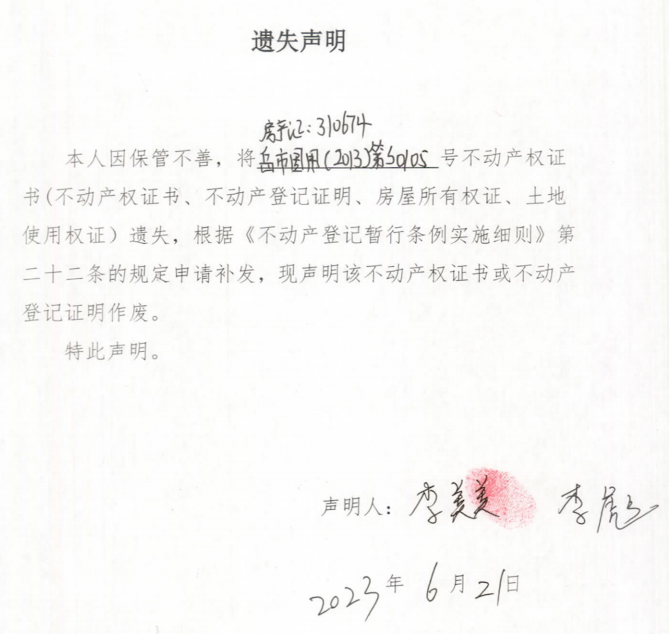 遗失声明
房产证:310674
本人因保管不善,将岳市国用(2013)第S0105号不动产权证
书(不动产权证书、不动产登记证明、房屋所有权证、土地
使用权证)遗失,根据《不动产登记暂行条例实施细则》第
二十二条的规定申请补发,现声明该不动产权证书或不动产
登记证明作废。
特此声明。
声明人:李美美 李彪
2023年6月21日